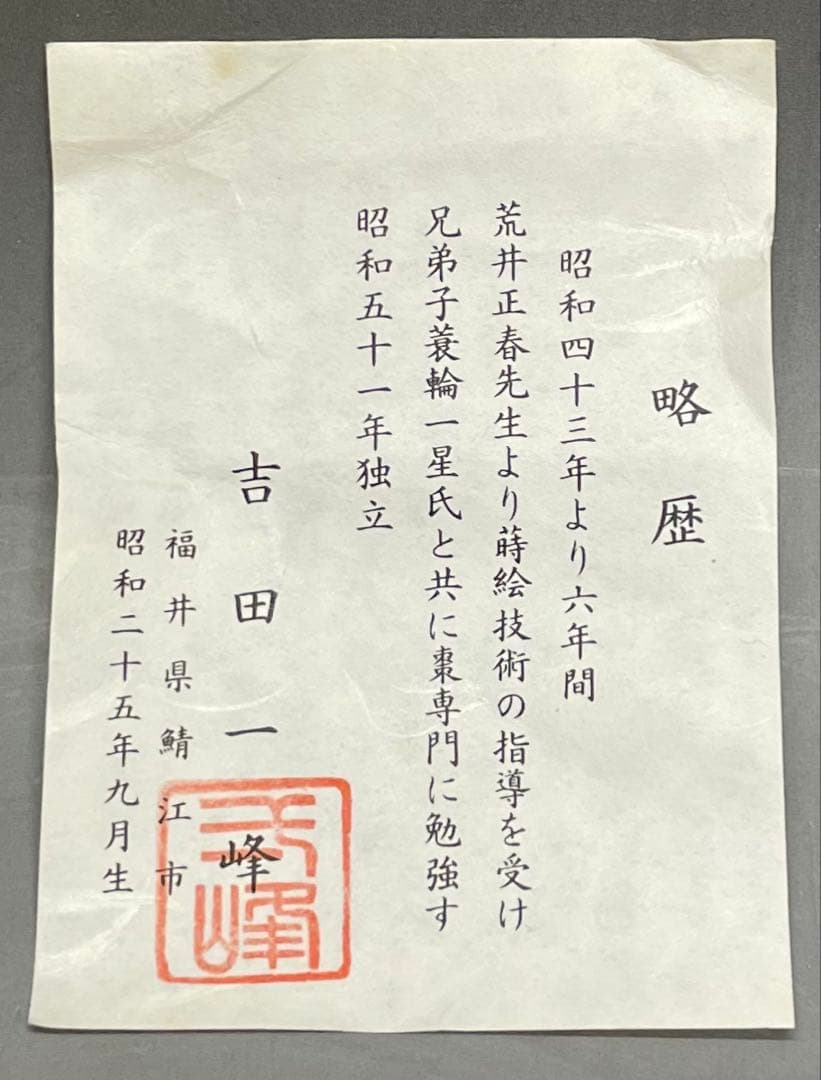 略歴
昭和四十三年より六年間
荒井正春先生より蒔絵技術の指導を受け
兄弟子蓑輪一星氏と共に棗専門に勉強す
昭和五十一年独立
吉田一峰
福井県鯖江市
昭和二十五年九月生